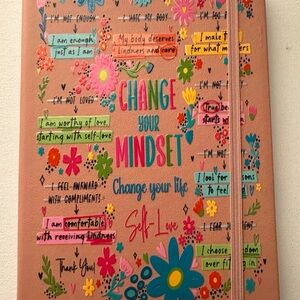 I'M NOT ENOUGH
I am enough
just as I am
I HATE MY BODY
My body deserves
kindness and care
I make t
for what m
I'M NOT LOVED
I am worthy of love,
starting with self-love
CHANGE
YOUR
MINDSET
Change your life
Self-Love
I'M NOT
True be
starts
I'M NOT
I look for
to fee
I FEEL AWKWARD
WITH COMPLIMENTS
I am comfortable
with receiving kindness
Thank You!
I FEAR
I choose
over fi